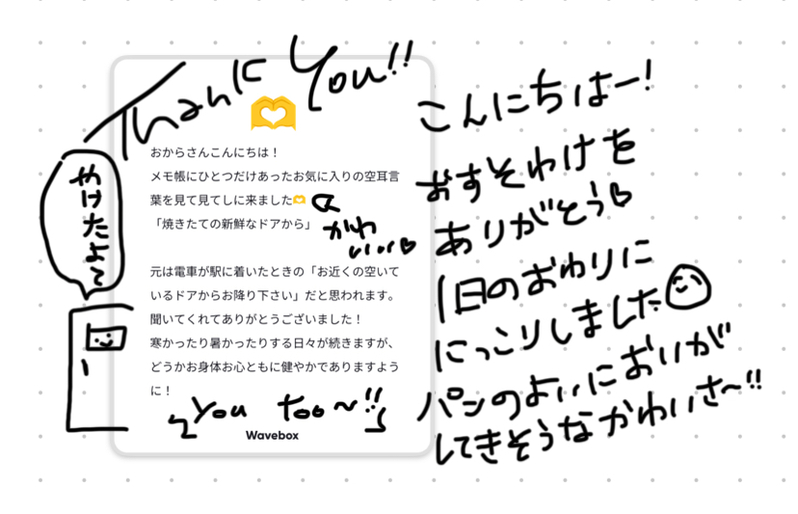 Thank You!!
おからさんこんにちは！
メモ帳にひとつだけあったお気に入りの空耳言
葉を見て見てしに来ました🫶
「焼きたての新鮮なドアから」
かわ
いい♡
元は電車が駅に着いたときの「お近くの空いて
いるドアからお降り下さい」だと思われます。
聞いてくれてありがとうございました！
寒かったり暑かったりする日々が続きますが、
どうかお身体お心ともに健やかでありますよう
に！
You too〜!!
Wavebox
やけたよて
こんにちはー!
おすそわけを
ありがとう♡
1日のおわりに
にっこりしました
パンのよいにおいが
してきそうなかわいさ〜!!